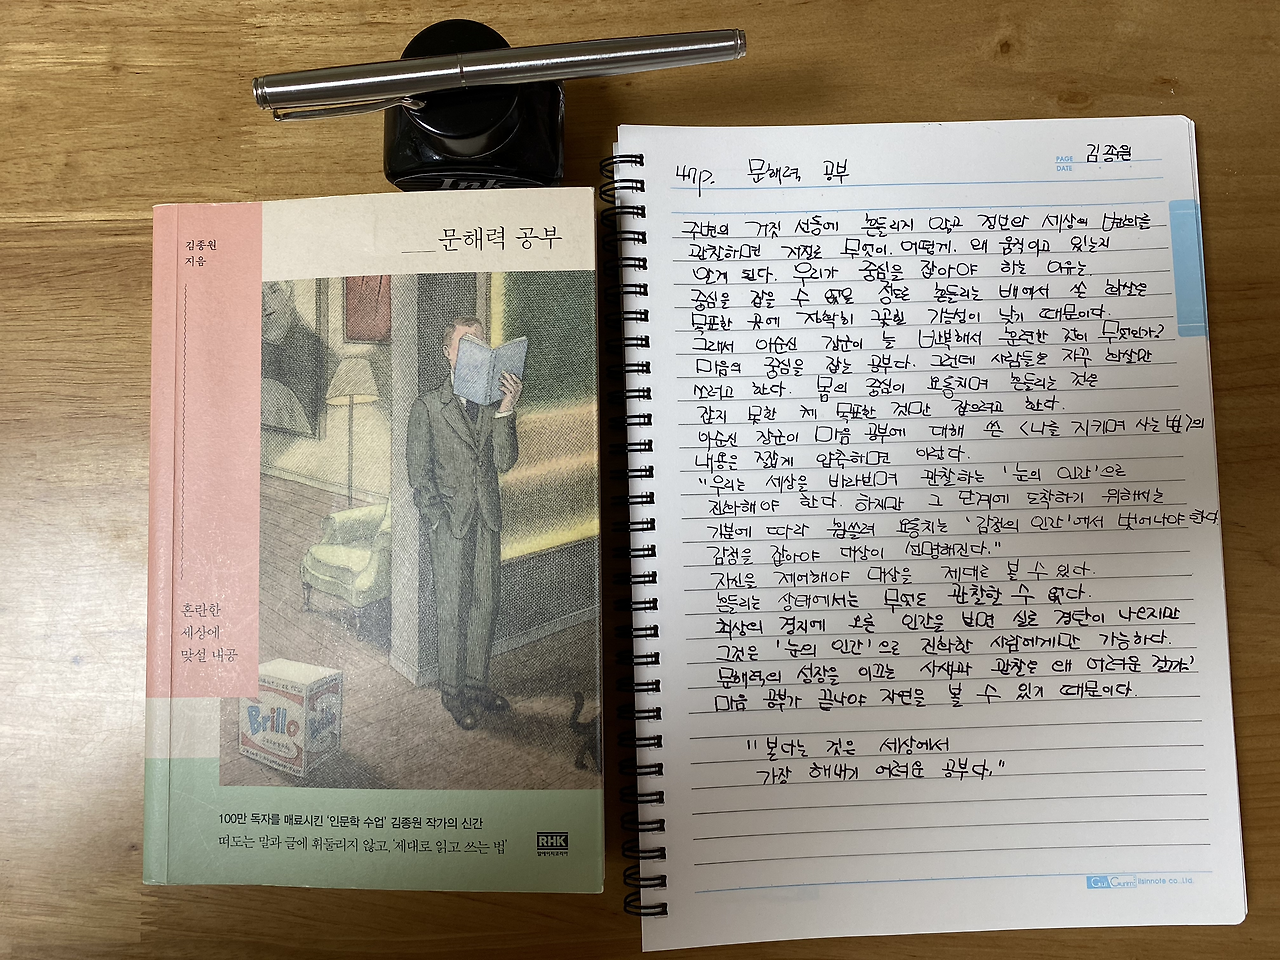 Ink
김종원
지음
문해력 공부
혼란한
세상에
맞설 내공
Brillo
100만 독자를 매료시킨 '인문학 수업' 김종원 작가의 신간
떠도는 말과 글에 휘둘리지 않고, '제대로 읽고 쓰는 법'
RHK
알에이치코리아
PAGE
DATE
김종원
47p. 문해력 공부
주변의 거짓 선동에 흔들리지 않고 정년의 세상의 변화를
관찰하면 저절로 무엇이, 어떻게, 왜 움직이고 있는지
알게 된다. 우리가 중심을 잡아야 하는 이유는
중심을 잡을 수 없을 정도로 흔들리는 배에서 쏜 화살은
목표한 곳에 정확히 꽂힐 가능성이 낮기 때문이다.
그래서 이순신 장군이 늘 반복해서 훈련한 것이 무엇인가?
마음의 중심을 잡는 공부다. 그런데 사람들은 자꾸 화살만
쏘려고 한다. 몸의 중심이 요동치며 흔들리는 것은
잡지 못한 체 목표한 것만 잡으려고 한다.
이순신 장군이 마음 공부에 대해 쓴 <나를 지키며 사는 법>의
내용을 짧게 압축하면 이렇다.
"우리는 세상을 바라보며 관찰하는 '눈의 인간'으로
진화해야 한다. 하지만 그 단계에 도착하기 위해서는
기분에 따라 휩쓸려 요동치는 '감정의 인간'에서 벗어나야 한다.
감정을 잡아야 대상이 선명해진다."
자신을 제어해야 대상을 제대로 볼 수 있다.
흔들리는 상태에서는 무엇도 관찰할 수 없다.
최상의 경지에 오른 인간을 보면 실로 경탄이 나오지만
그것은 '눈의 인간'으로 진화한 사람에게만 가능하다.
문해력의 성장을 이끄는 사색과 관찰은 왜 어려운 걸까?
마음 공부가 끝나야 자연을 볼 수 있기 때문이다.
"본다는 것은 세상에서
가장 해내기 어려운 공부다."
Ilsinnote co.,Ltd.